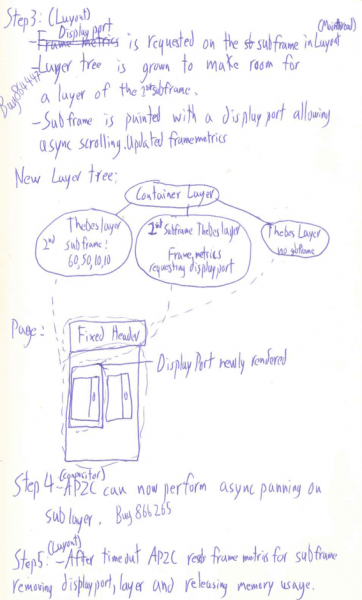 Step 3: (Layout)
Display port
- Frame metrics is requested on the subframe in Layout (Main thread)
- Layer tree is grown to make room for
a layer of the 1st subframe.
Bug 864447
- Subframe is painted with a display port allowing
async scrolling. Updated framemetrics
New Layer tree:
Container Layer
Thebes layer
2nd subframe:
60,50,10,10
1st Subframe Thebes layer
Frame metrics
requesting displayport
Thebes Layer
no subframe
Page:
Fixed Header
Display Port newly rendered
Step 4 (compositor)
- APZC can now perform async panning on
sublayer. Bug 866265
Step 5: (Layout)
- After timeout APZC frame metrics for subframe
removing displayport, layer and releasing memory usage.